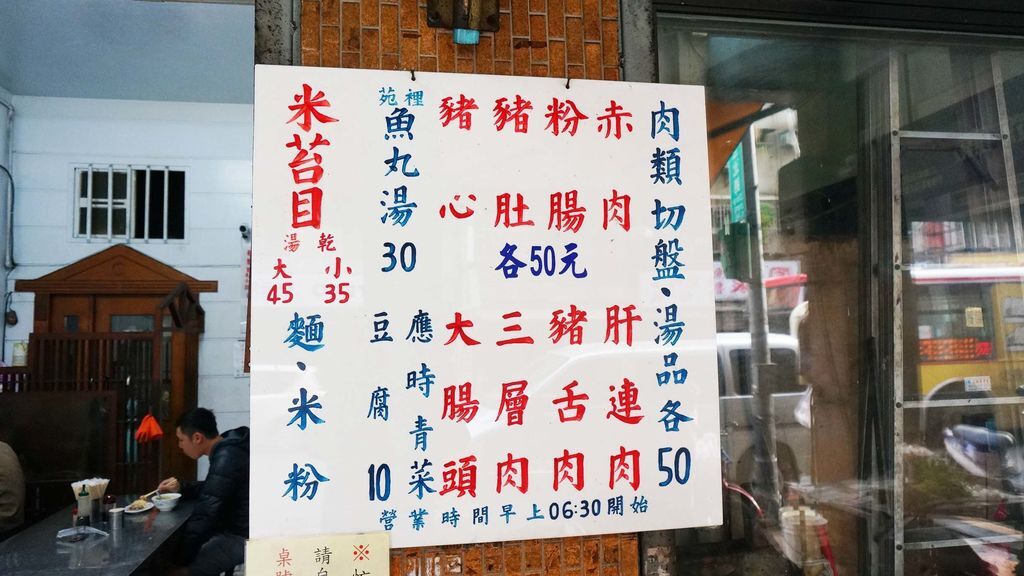 肉類切盤、湯品各50
赤肉
粉腸
豬肚
豬心
各50元
肝連肉
豬舌肉
三層肉
大腸頭
苑裡
魚丸湯
30
應時青菜
豆腐
10
米苔目
湯 乾
大 小
45 35
麵、米粉
營業時間早上06:30開始
※
請自
桌號